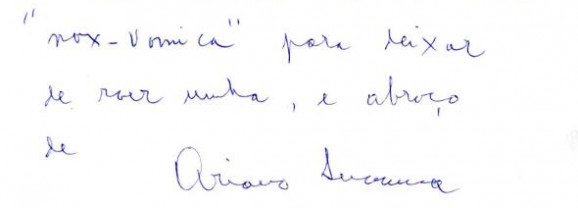 "nox-vomica" para deixar
de roer unha, e abraço
de
Ariano Suassuna